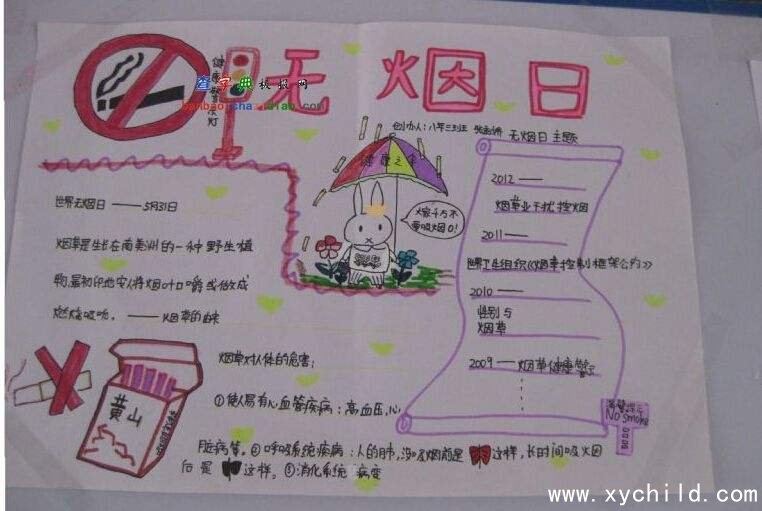 无烟日
查字典模板网
健康之伞
无烟日主题
2012——
烟草业干扰控烟
大家千万不
要吸烟O!
世界无烟日——5月31日
2011——
烟草是生长在南美洲的一种野生植
世界卫生组织《烟草控制框架公约》
物,最初印地安人将烟叶口嚼或做成
2010——
性别与
烟草
燃烧吸吮。——烟草的由来
烟草对人体的危害:
2009——烟草健康警示
黄山
①使人易有心血管疾病:高血压,心
温馨提示
NO smoke
脏病等。②呼吸系统疾病:人的肺,没吸烟前是这样,长时间吸烟
后是这样。③消化系统病变
www.xychild.com